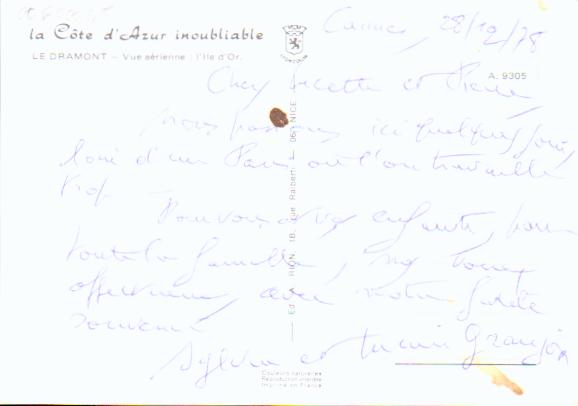 la Côte d'Azur inoubliable
LE DRAMONT – Vue aérienne : l'Ile d'Or.
Cannes, 28/12/78
A. 9305
Chers et Pierre
Nous passons ici quelques jours,
loin d'un Paris où l'on travaille
trop.
Pour vous, vos enfants, pour
toute la famille, nos voeux
affectueux, avec notre fidèle
souvenir
Sylvia et Lucien Granjon
Ed. A. RION, 1B, rue Raiberti – 06 NICE
Couleurs naturelles
Reproduction interdite
Imprimé en France